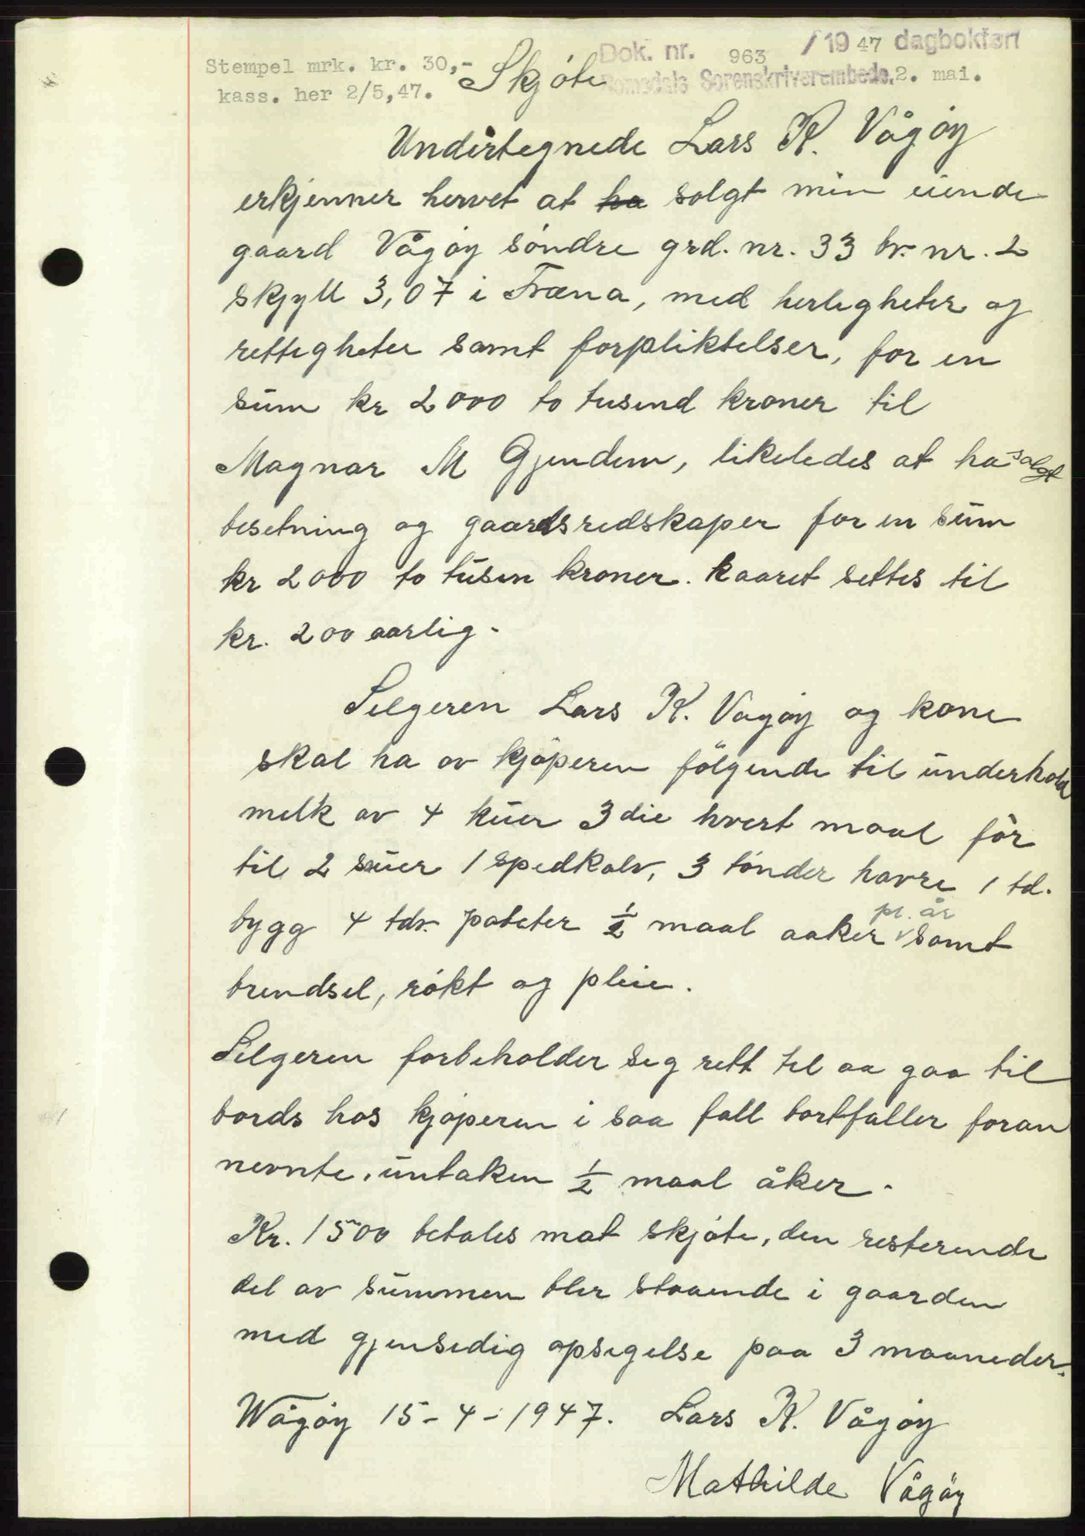 Dok. nr. 963 / 19 47 dagbokført
Stempel mrk. kr. 30,- Skjöte Romsdals Sorenskriverembede. 2. mai.
kass. her 2/5,47.
Undertegnede Lars K. Vågöy
erkjenner hervet at ha solgt min eiende
gaard Vågöy söndre grd. nr. 33 br. nr. 2
skjyll 3,07 i Fræna, med herligheter og
rettigheter samt forpliktelser, for en
sum kr 2000 to tusend kroner til
Magnar M Gjendem, likeledes at ha solgt
besetning og gaardsredskaper for en sum
kr 2000 to tusen kroner. kaaret settes til
kr. 200 aarlig.
Selgeren Lars K. Vågöy og kone
skal ha av kjöperen fölgende til underhold
melk av 4 kuer 3die hvert maal för
til 2 suer 1 spedkalv, 3 tönder havre 1 td.
bygg 4 tdr. poteter ½ maal aaker pr. år samt
brendsel, rökt og pleie.
Selgeren forbeholder seg rett til aa gaa til
bords hos kjöperen i saa fall bortfaller foran
nevnte, untaken ½ maal åker.
Kr. 1500 betales mot skjöte, den resterende
del av summen bler staaende i gaarden
med gjensedig opsigelse paa 3 maaneder.
Wågöy 15-4-1947. Lars K. Vågöy
Mathilde Vågöy